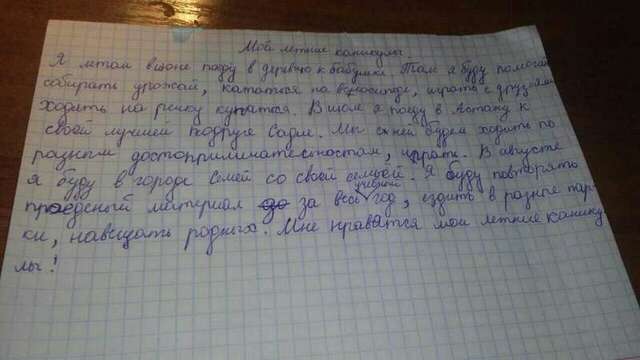 Мои летние каникулы.
Я летом в июне поеду в деревню к бабушке. Там я буду помогать
собирать урожай, кататься на велосипеде, играть с друзьями
ходить на речку купаться. В июле я поеду в Астану к
своей лучшей подруге Софие. Мы с ней будем ходить по
разным достопримечательностям, играть. В августе
я буду в городе Семей со своей семьей. Я буду повторять
пройденый материал за весь учебный год, ездить в разные пар-
ки, навещать родных. Мне нравятся мои летние канику-
лы!